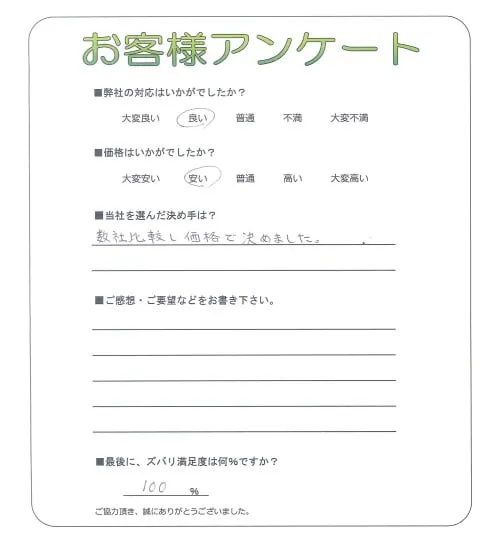 お客様アンケート
■弊社の対応はいかがでしたか？
大変良い 良い 普通 不満 大変不満
■価格はいかがでしたか？
大変安い 安い 普通 高い 大変高い
■当社を選んだ決め手は？
数社比較し価格で決めました。
■ご感想・ご要望などをお書き下さい。
■最後に、ズバリ満足度は何％ですか？
100 %
ご協力頂き、誠にありがとうございました。